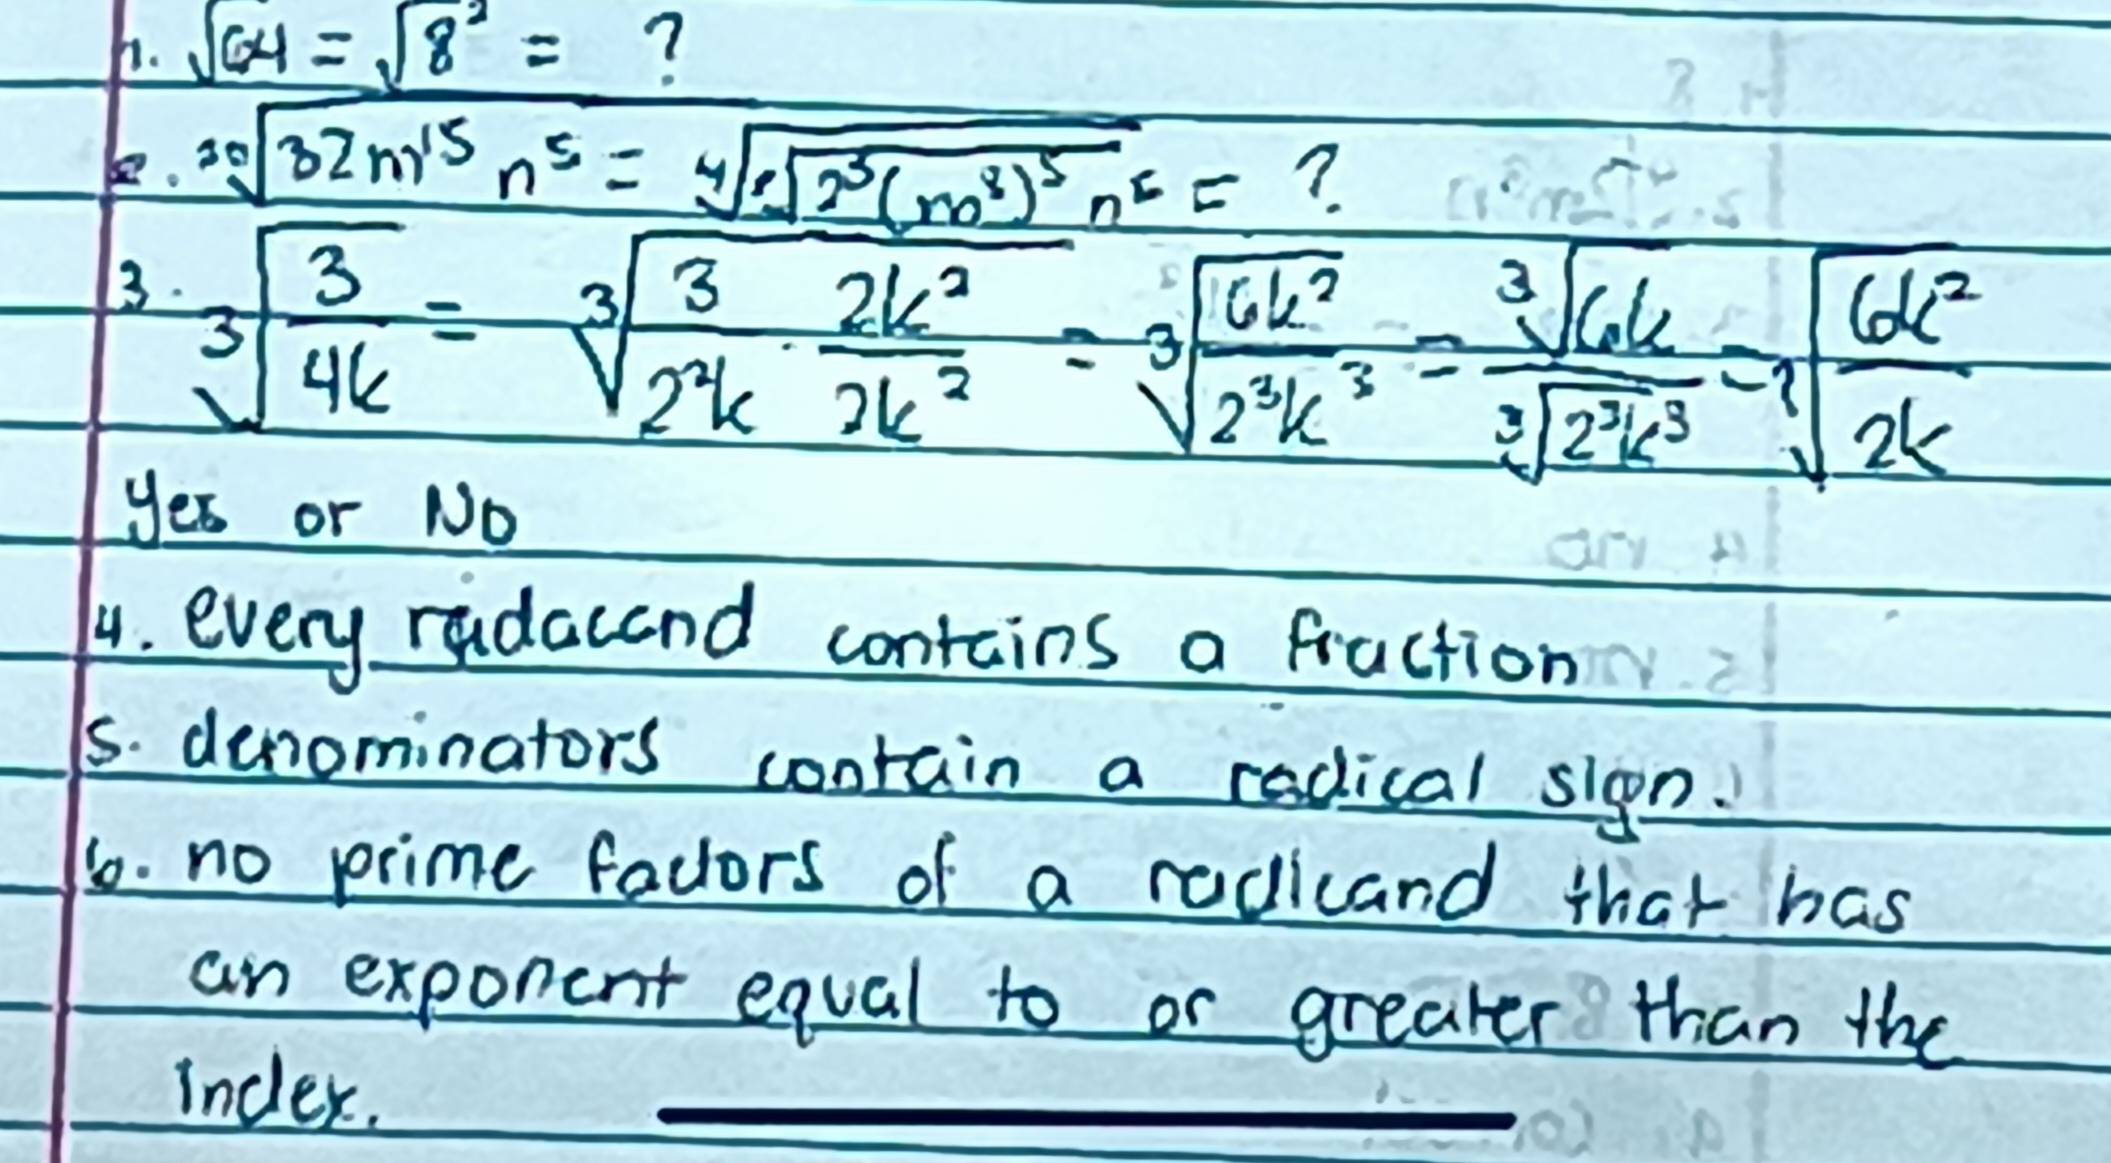 1. √64 = √8² = ?
2. ²⁰√32m¹⁵ n⁵ = ⁴√⁵√2⁵(m³)⁵ n⁵ = ?
3. ³√3/4k = ³√3/2²k · 2k²/2k² = ³√6k²/2³k³ = ³√6k/³√2³k³ = ? √6k²/2k
Yes or No
4. every radacand contains a fraction
5. denominators contain a radical sign.
6. no prime factors of a radicand that has
an exponent equal to or greater than the
index.